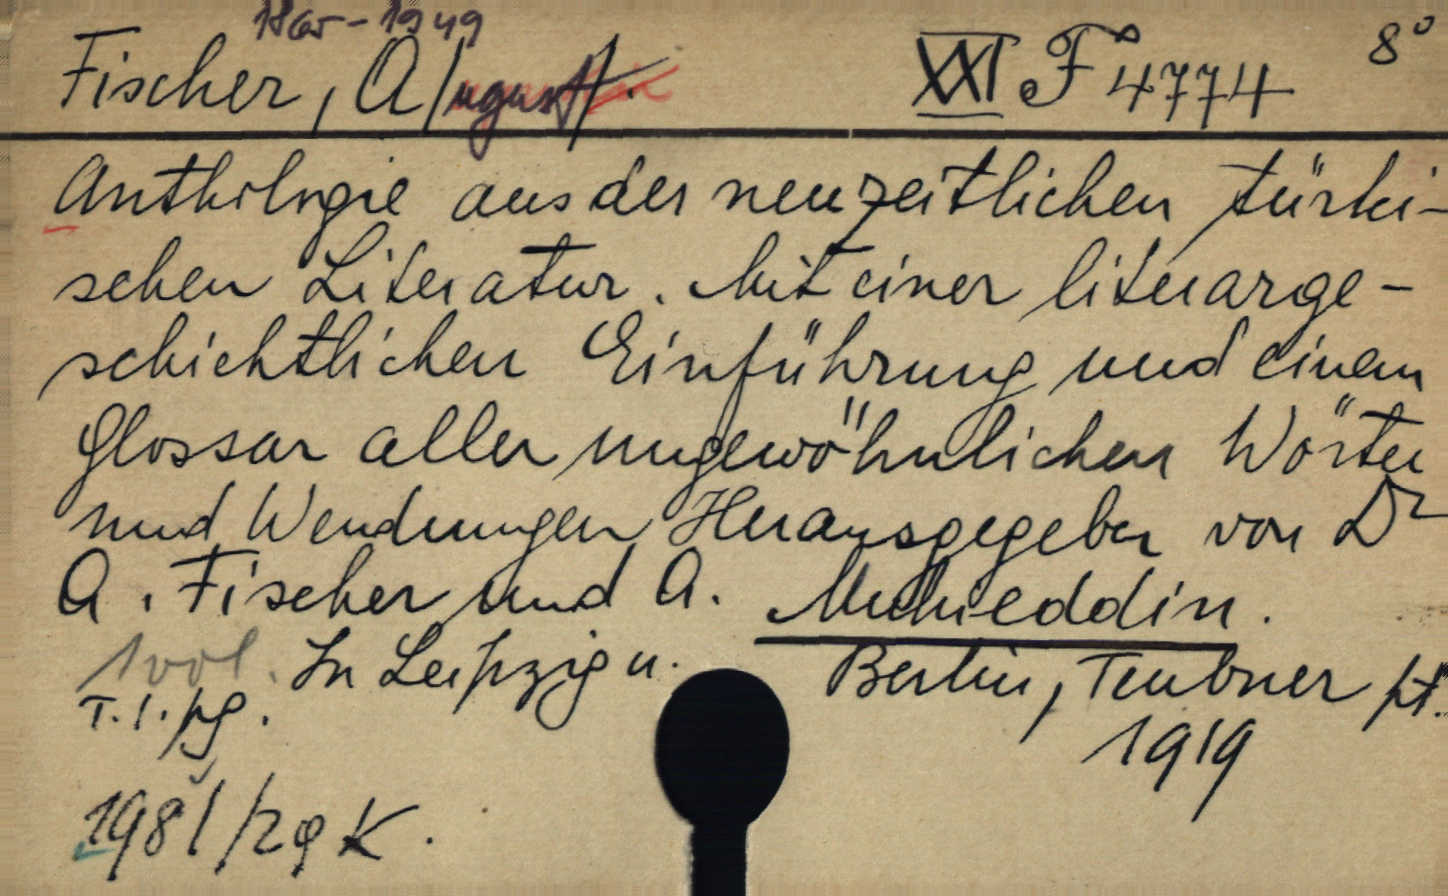 1865-1949
Fischer, A/ugust/. XXI F 4774 8°
Anthologie aus der neuzeitlichen türki-
schen Literatur. Mit einer literarge-
schichtlichen Einführung und einem
Glossar aller ungewöhnlichen Wörter
und Wendungen Herausgegeben von Dr
A. Fischer und A. Muhieddin.
1 vol. In Leipzig u. Berlin, Teubner pt.
T. I. pg. 1919
1981/29 K.